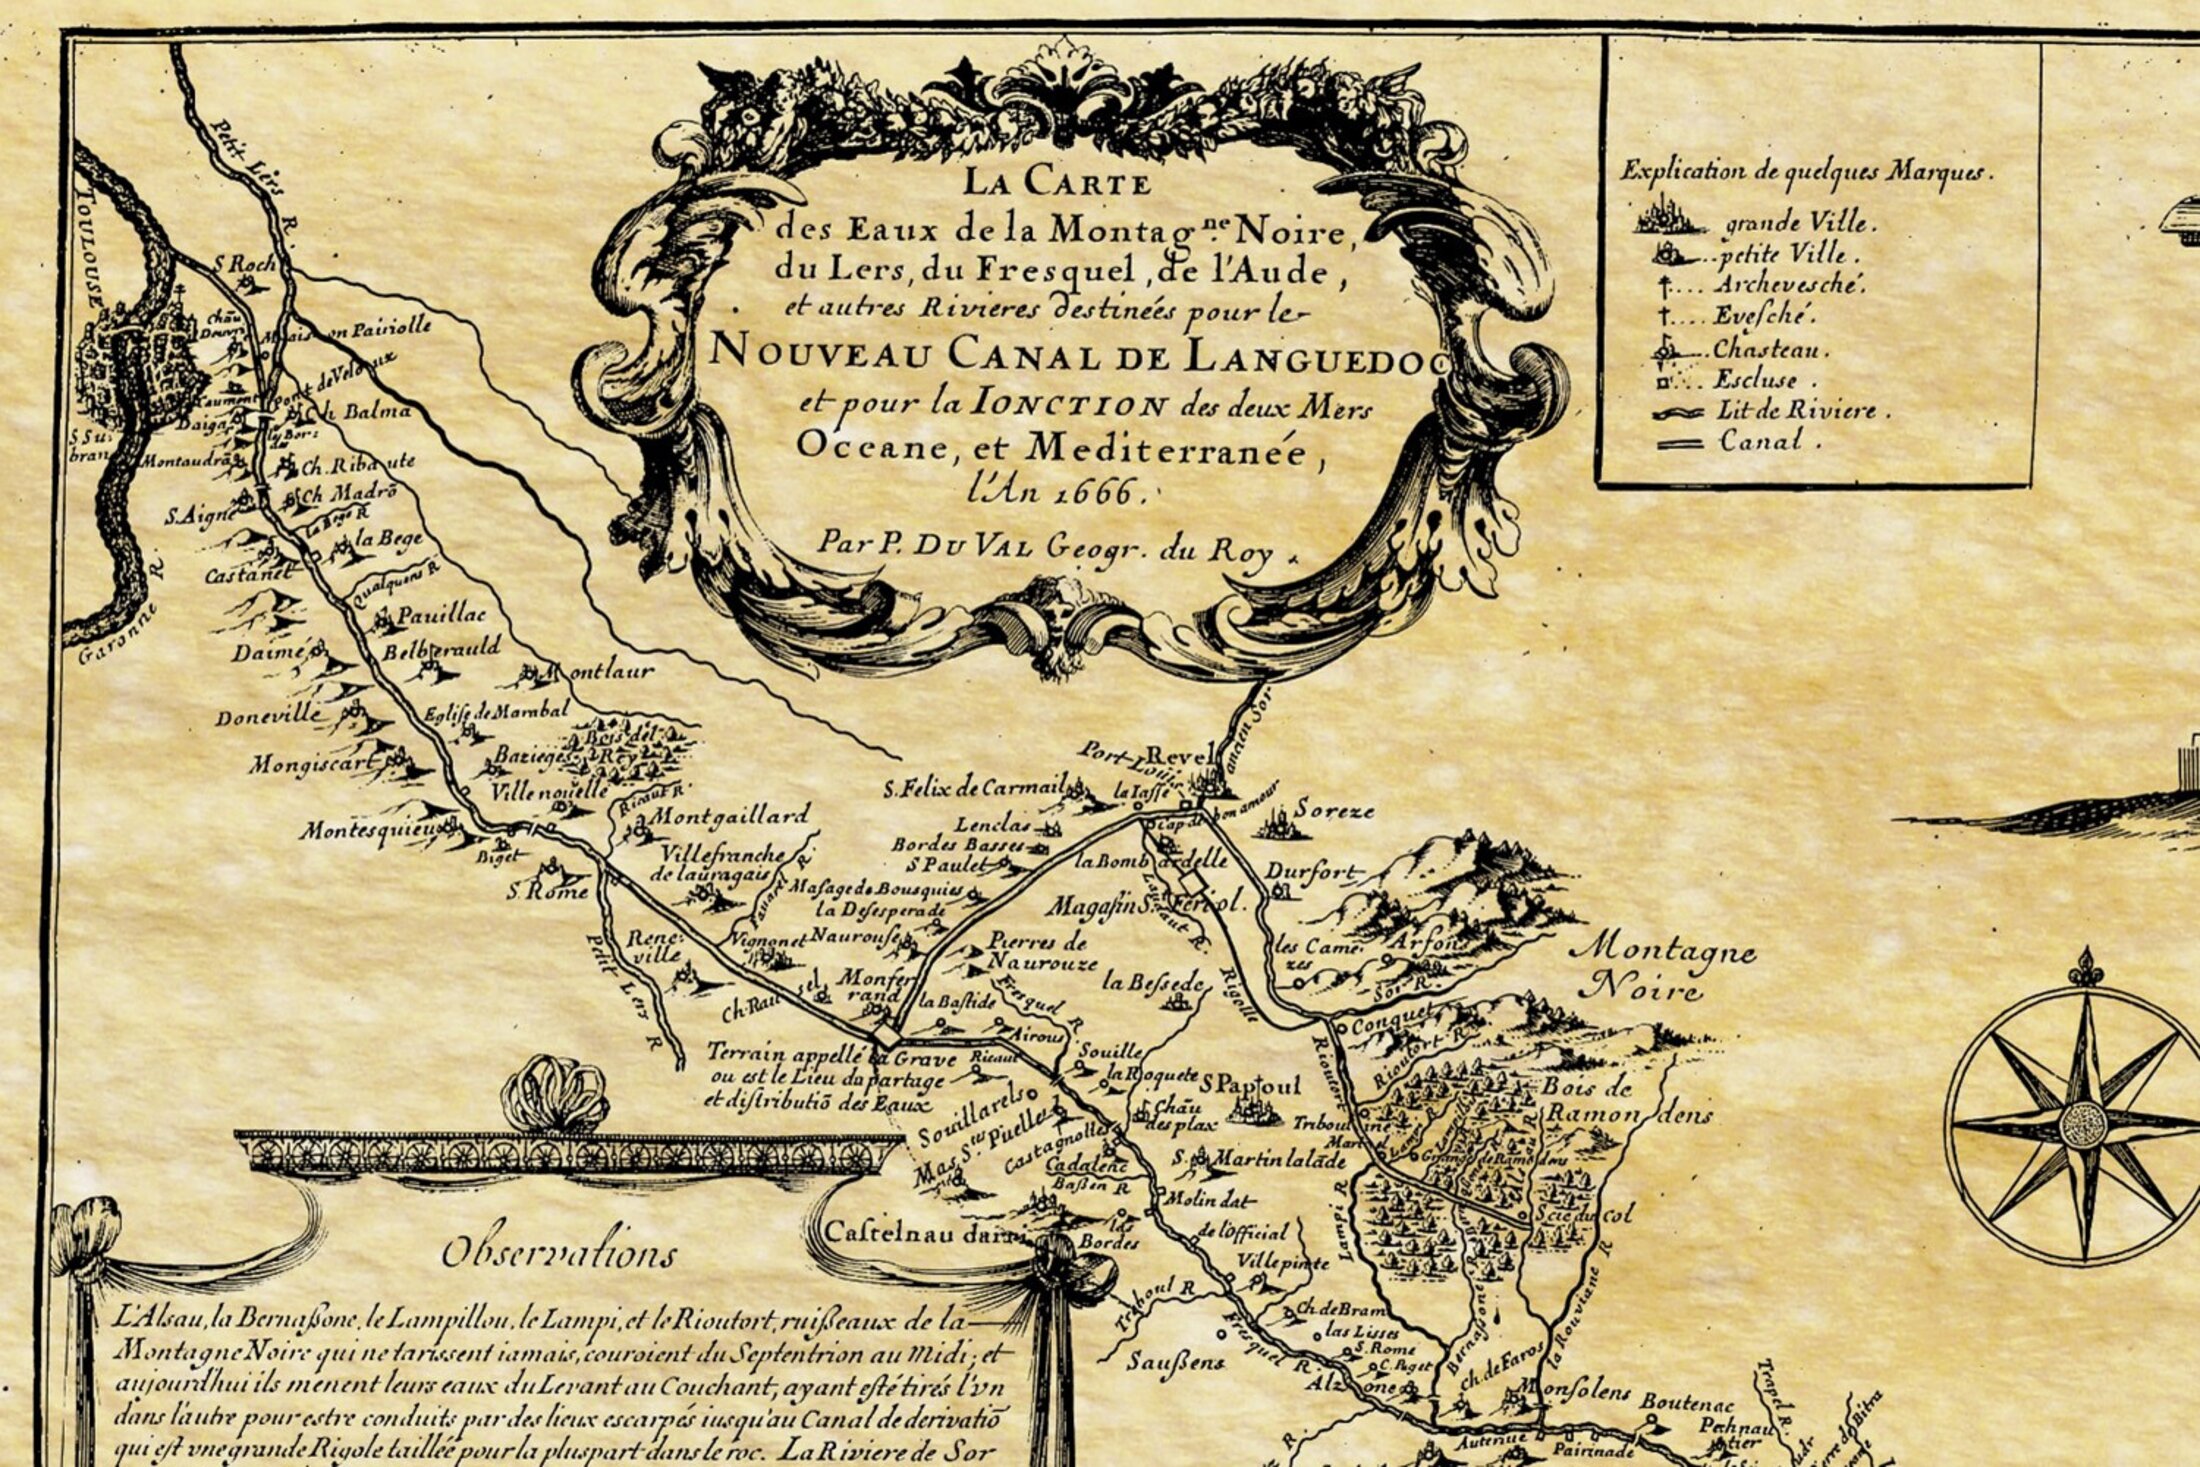 LA CARTE
des Eaux de la Montag.ne Noire,
du Lers, du Fresquel, de l'Aude,
et autres Rivieres destinées pour le
NOUVEAU CANAL DE LANGUEDOC
et pour la IONCTION des deux Mers
Oceane, et Mediterranée,
l'An 1666.
Par P. DU VAL Geogr. du Roy.
Explication de quelques Marques.
grande Ville.
petite Ville.
Archevesché.
Evesché.
Chasteau.
Escluse.
Lit de Riviere.
Canal.
Petit Lers R.
TOULOUSE
S Roch
Maison Pairiolle
Pont de Veloux
Ch Balma
Daiga
S Su:
bran
Montaudrã
Ch. Ribaute
Ch Madrõ
S. Aigne
la Bege R
la Bege
Castanet
Qualquens R
Garonne R.
Pauillac
Daimé
Belberauld
Montlaur
Doneville
Eglise de Marabal
Bois del
Rey
Mongiscart
Bazieges
Ville nouelle
Ricaut R.
Montesquieu
Montgaillard
Biget
S. Rome
Villefranche
de lauragais
Petit Lers R
Rene:
ville
Vignonet
Naurouse
Masage de Bousquies
la Desesperade
S. Felix de Carmail
Lenclas
Bordes Basses
S Paulet
Port Louis
Revel
ancien Sor
la Iasse
bon amour
Soreze
la Bombardelle
Durfort
Magasin S. Feriol.
Laudaut R.
Rigolle
les Came:
zes
Arfons
Sor R.
Montagne
Noire
Pierres de
Naurouze
Monfer
rand
la Bastide
Fresquel R.
la Bessede
Ch. Rau sel
Airous
Ricaut
Terrain appellé la Grave
ou est le Lieu du partage
et distributiõ des Eaux
Souille
la Roquete
S Papoul
Conquet
Rioutort R.
Rioutort
Bois de
Ramondens
Souillarels
Mas S.tes Puelles
Castagnolles
Chãu
des plax
Cadalenc
Bassen R
S. Martin lalãde
Molin dat
de l'Official
Castelnau darri
las
Bordes
Villepinte
Lampi R
Scie du col
Treboul R
Ch. de Bram
las Lisses
S. Rome
C. Puget
Saussens
Fresquel R.
Alzone
Bernassone
ch. de Faros
la Rouviane R
Monsolens
Boutenac
Trapel R.
Pechnau
tier
Pairinade
R.
Observations
L'Alsau, la Bernassone, le Lampillou, le Lampi, et le Rioutort, ruisseaux de la
Montagne Noire qui ne tarissent iamais, couroient du Septentrion au Midi; et
aujourdhui ils menent leurs eaux du Levant au Couchant, ayant esté tirés l'vn
dans l'autre pour estre conduits par des lieux escarpés iusqu'au Canal de derivatiõ
qui est vne grande Rigole taillée pour la pluspart dans le roc. La Riviere de Sor